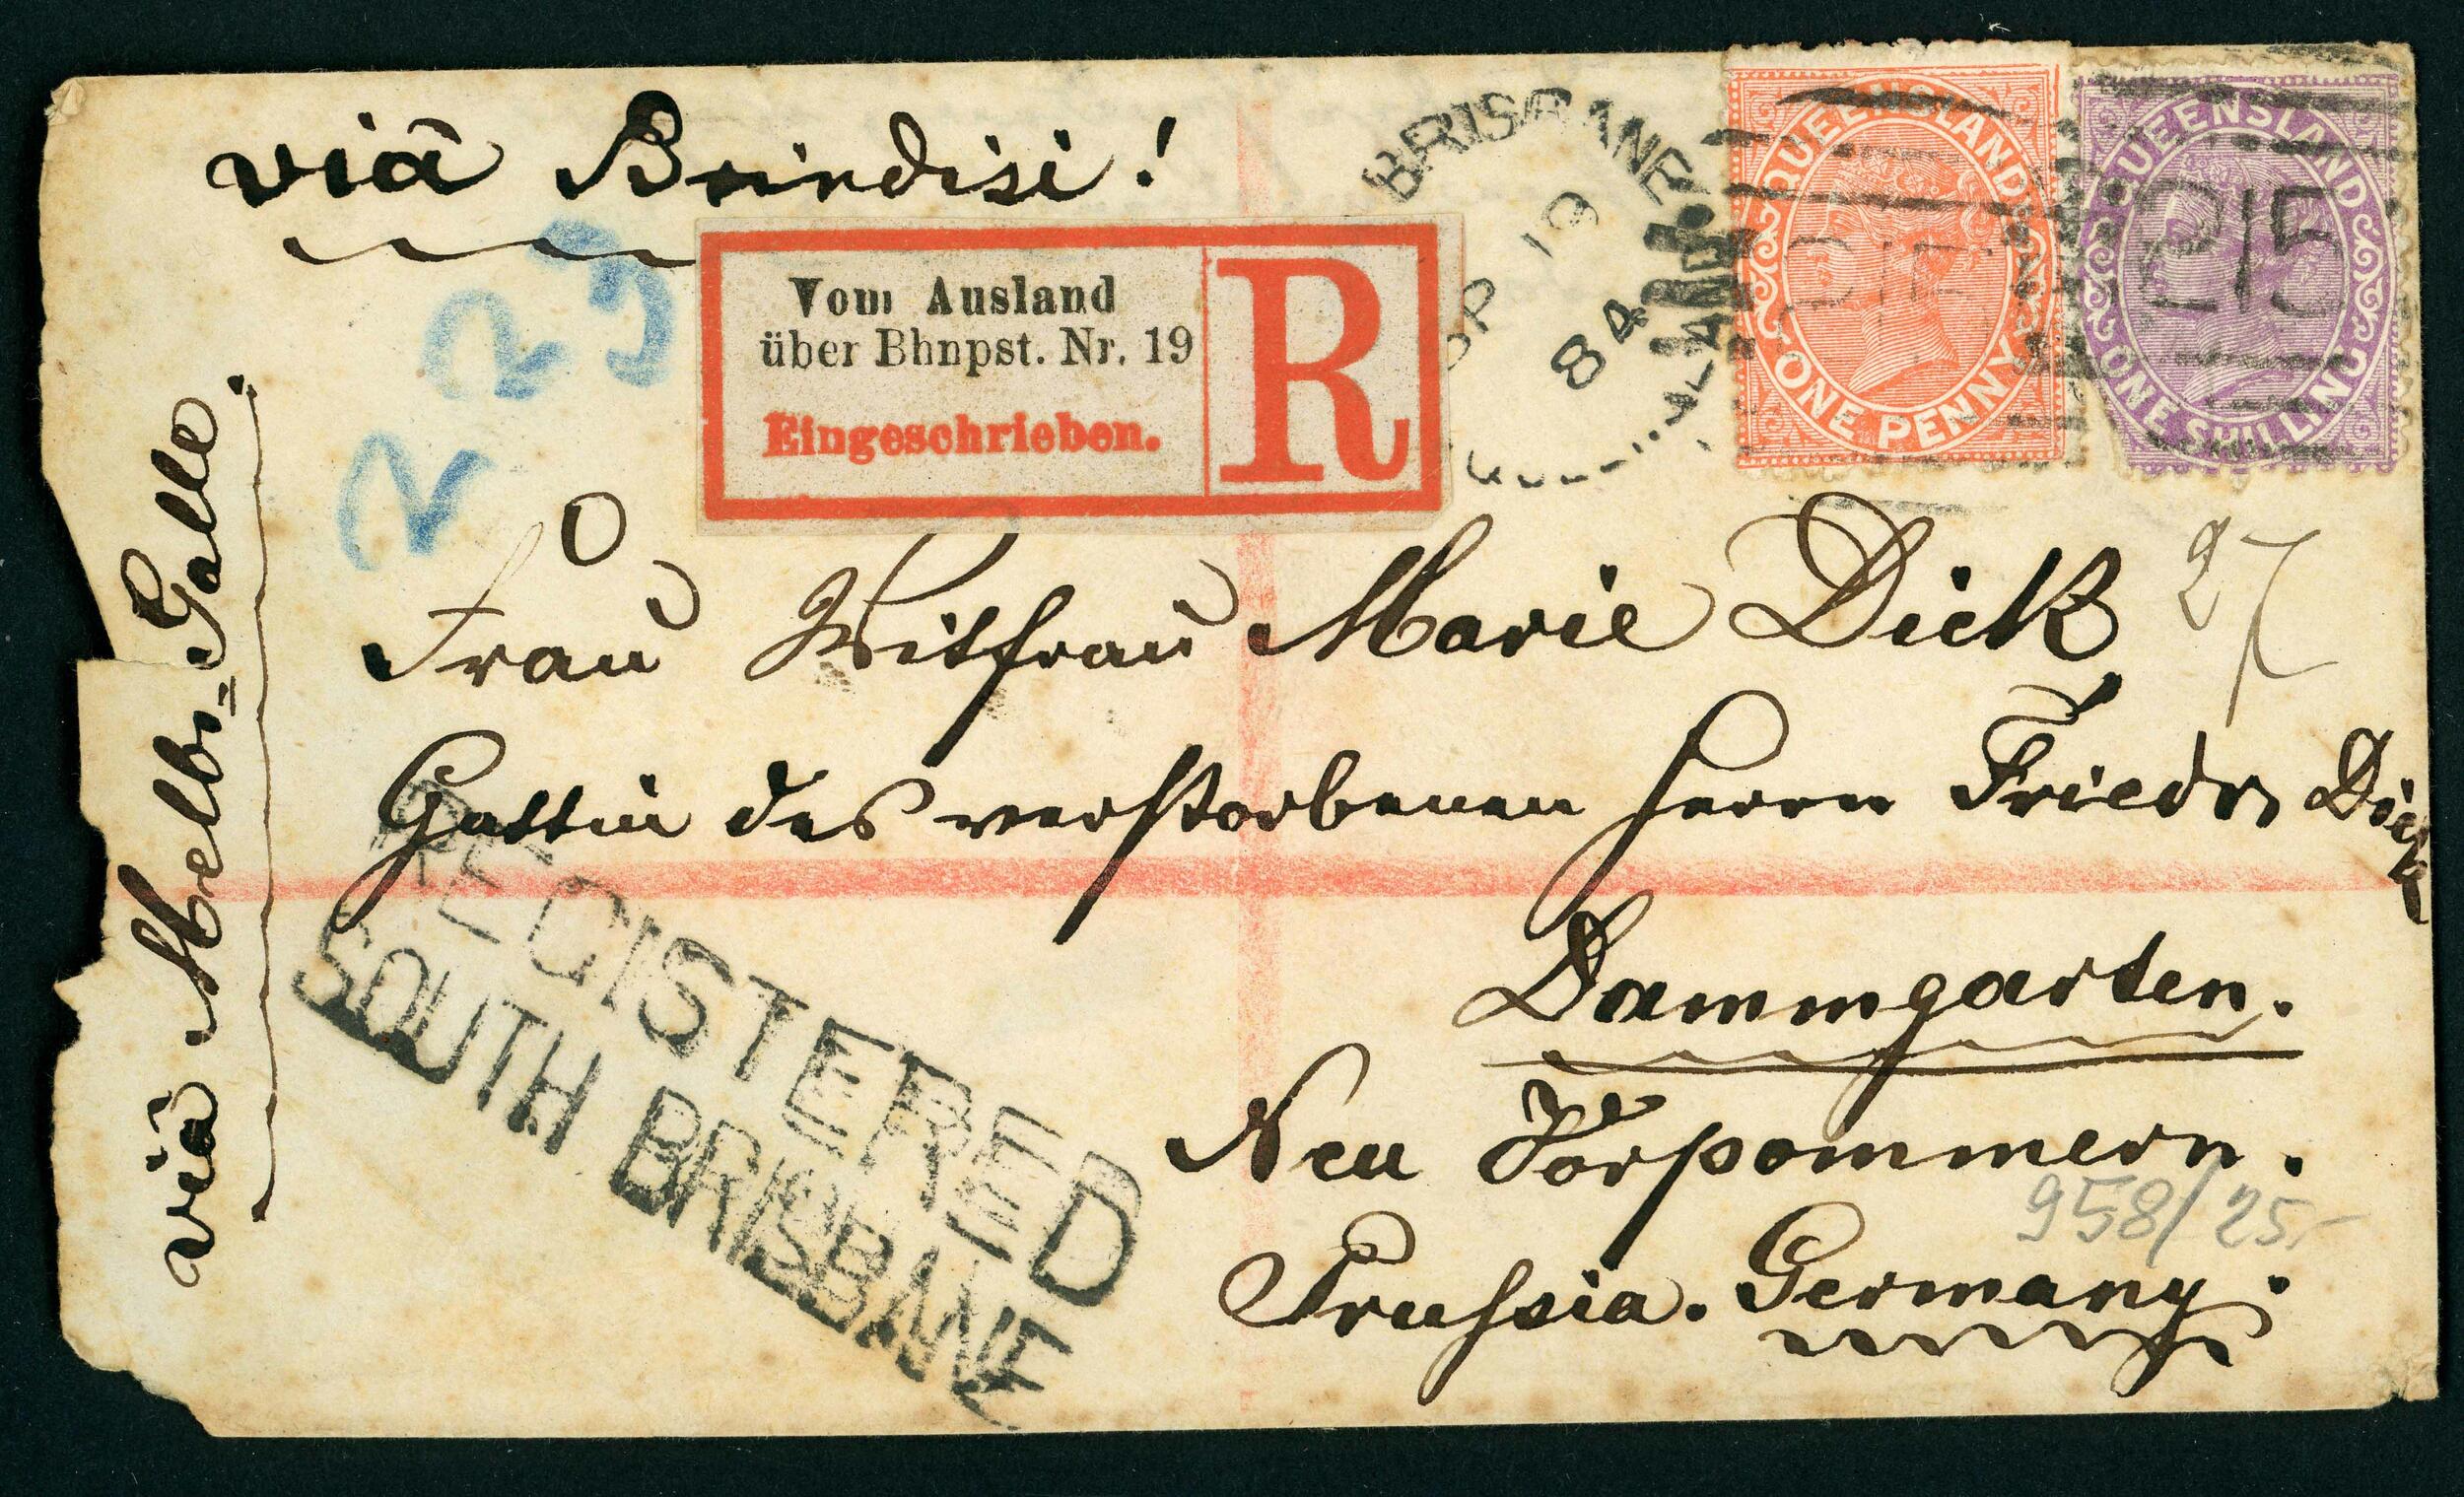 viā Brindisi!
BRISBANE
SP 19
84
QUEENSLAND
215
ONE PENNY
QUEENSLAND
215
ONE SHILLING
Vom Ausland
über Bhnpst. Nr. 19
Eingeschrieben.
R
viā Melbr=Galle.
Frau Witfrau Marie Dick
27
Gattin des verstorbenen Herrn Friedr Dick
Dammgarten.
Neu Vorpommern.
958/25.-
Prussia. Germany.
REGISTERED
SOUTH BRISBANE